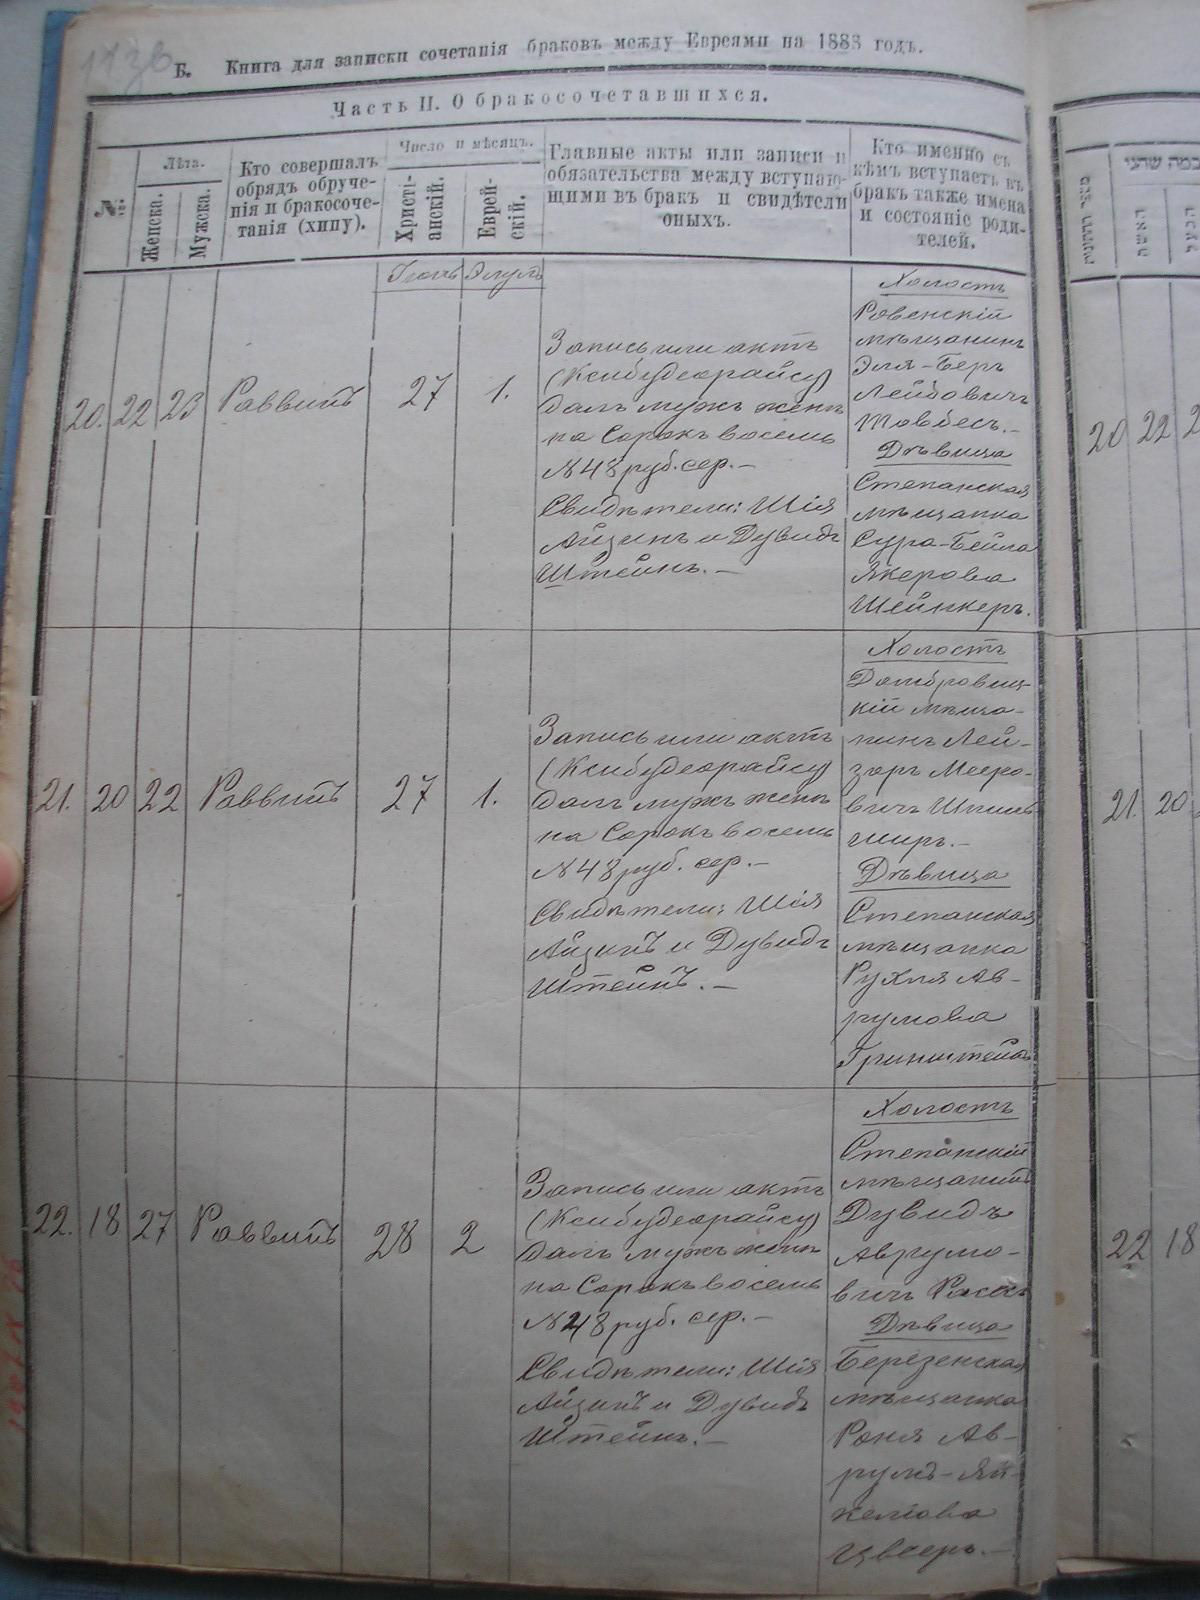 Б. Книга для записки сочетанія браковъ между Евреями на 1888 годъ.
Часть II. О бракосочетавшихся.
№
Лѣта.
Женска.
Мужска.
Кто совершалъ
обрядъ обруче-
нія и бракосоче-
танія (хипу).
Число и мѣсяцъ.
Христі-
анскій.
Еврей-
скій.
Главные акты или записи и
обязательства между вступаю-
щими въ бракъ и свидѣтели
оныхъ.
Кто именно съ
кѣмъ вступаетъ въ
бракъ также имена
и состояніе роди-
телей.
Элулъ
20. 22 23 Раввинъ 27 1.
Запись или актъ
(Ксибудеорайсу)
далъ мужъ женѣ
на Сорокъ восемь
№48 руб. сер.—
Свидѣтели: Шія
Айзинъ и Дувидъ
Штейнъ.—
Холостъ
Ровенскій
мѣщанинъ
Эля-Беръ
Лейбовичъ
Товбесъ.—
Дѣвица
Степанская
мѣщанка
Сура-Бейла
Якерова
Шейнкеръ.
21. 20 22 Раввинъ 27 1.
Запись или актъ
(Ксибудеорайсу)
далъ мужъ женѣ
на Сорокъ восемь
№48 руб. сер.—
Свидѣтели: Шія
Айзинъ и Дувидъ
Штейнъ.—
Холостъ
Домбровиц-
кій мѣща-
нинъ Лей-
зоръ Мееро-
вичъ Шпиль-
миръ.—
Дѣвица
Степанская
мѣщанка
Рухля Ав-
румова
Гринштейнъ
22. 18 27 Раввинъ 28 2
Запись или актъ
(Ксибудеорайсу)
далъ мужъ женѣ
на Сорокъ восемь
№48 руб. сер.—
Свидѣтели: Шія
Айзинъ и Дувидъ
Штейнъ.—
Холостъ
Степанскій
мѣщанинъ
Дувидъ
Аврумо-
вичъ
Дѣвица
Березенская
мѣщанка
Роня Ав-
румъ-Ян-
келіова
Цвееръ.—
האשה
הבעל
20 22 2
21. 20
22 18